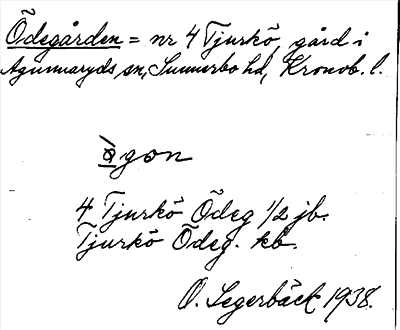 Ödegården = nr 4 Tjurkö, gård i
Agunnaryds sn, Sunnerbo hd, Kronob. l.
ògon
4 Tjurkö Ödeg 1/2 jb.
Tjurkö Ödeg. kb.
O. Segerbäck 1938.